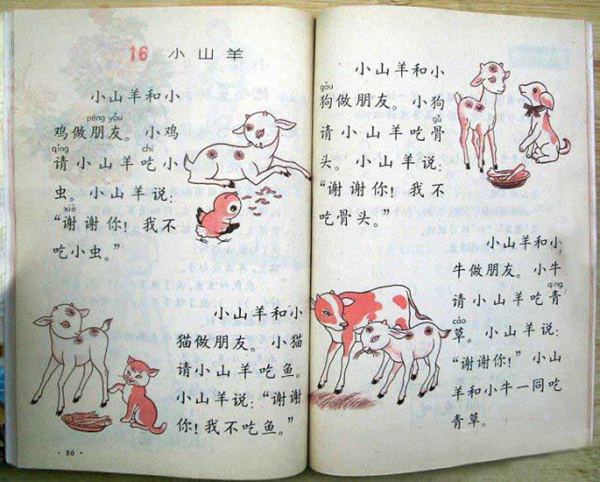 16 小山羊
小山羊和小
péng yǒu
鸡做朋友。小鸡
qǐng chī
请小山羊吃小
虫。小山羊说:
xiè
“谢谢你!我不
吃小虫。”
小山羊和小
猫做朋友。小猫
请小山羊吃鱼。
小山羊说:“谢谢
你!我不吃鱼。”
·50·
小山羊和小
gǒu
狗做朋友。小狗
gǔ
请小山羊吃骨
头。小山羊说:
“谢谢你!我不
吃骨头。”
小山羊和小
牛做朋友。小牛
qīng
请小山羊吃青
cǎo
草。小山羊说:
“谢谢你!”小山
羊和小牛一同吃
青草。